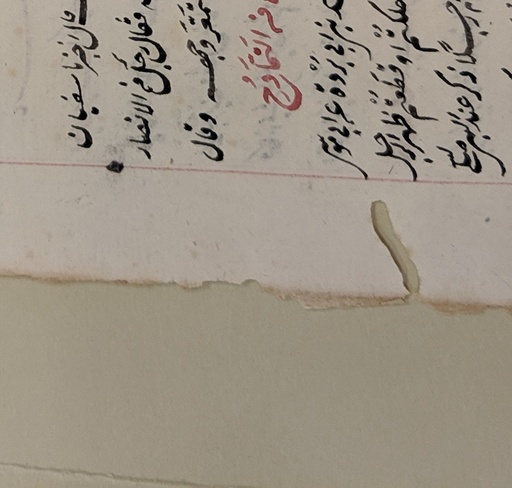 قال اخبرنا سفيان
فقال رجل من الانصار
فتمَعَّرَ وجهه وقال
من التَمَادُح
بن ابي بُرْدة عن ابي موسى
اهلكتُم او قطَعْتُم ظهر الرجل
رجلا ذكر عند النبي صلى